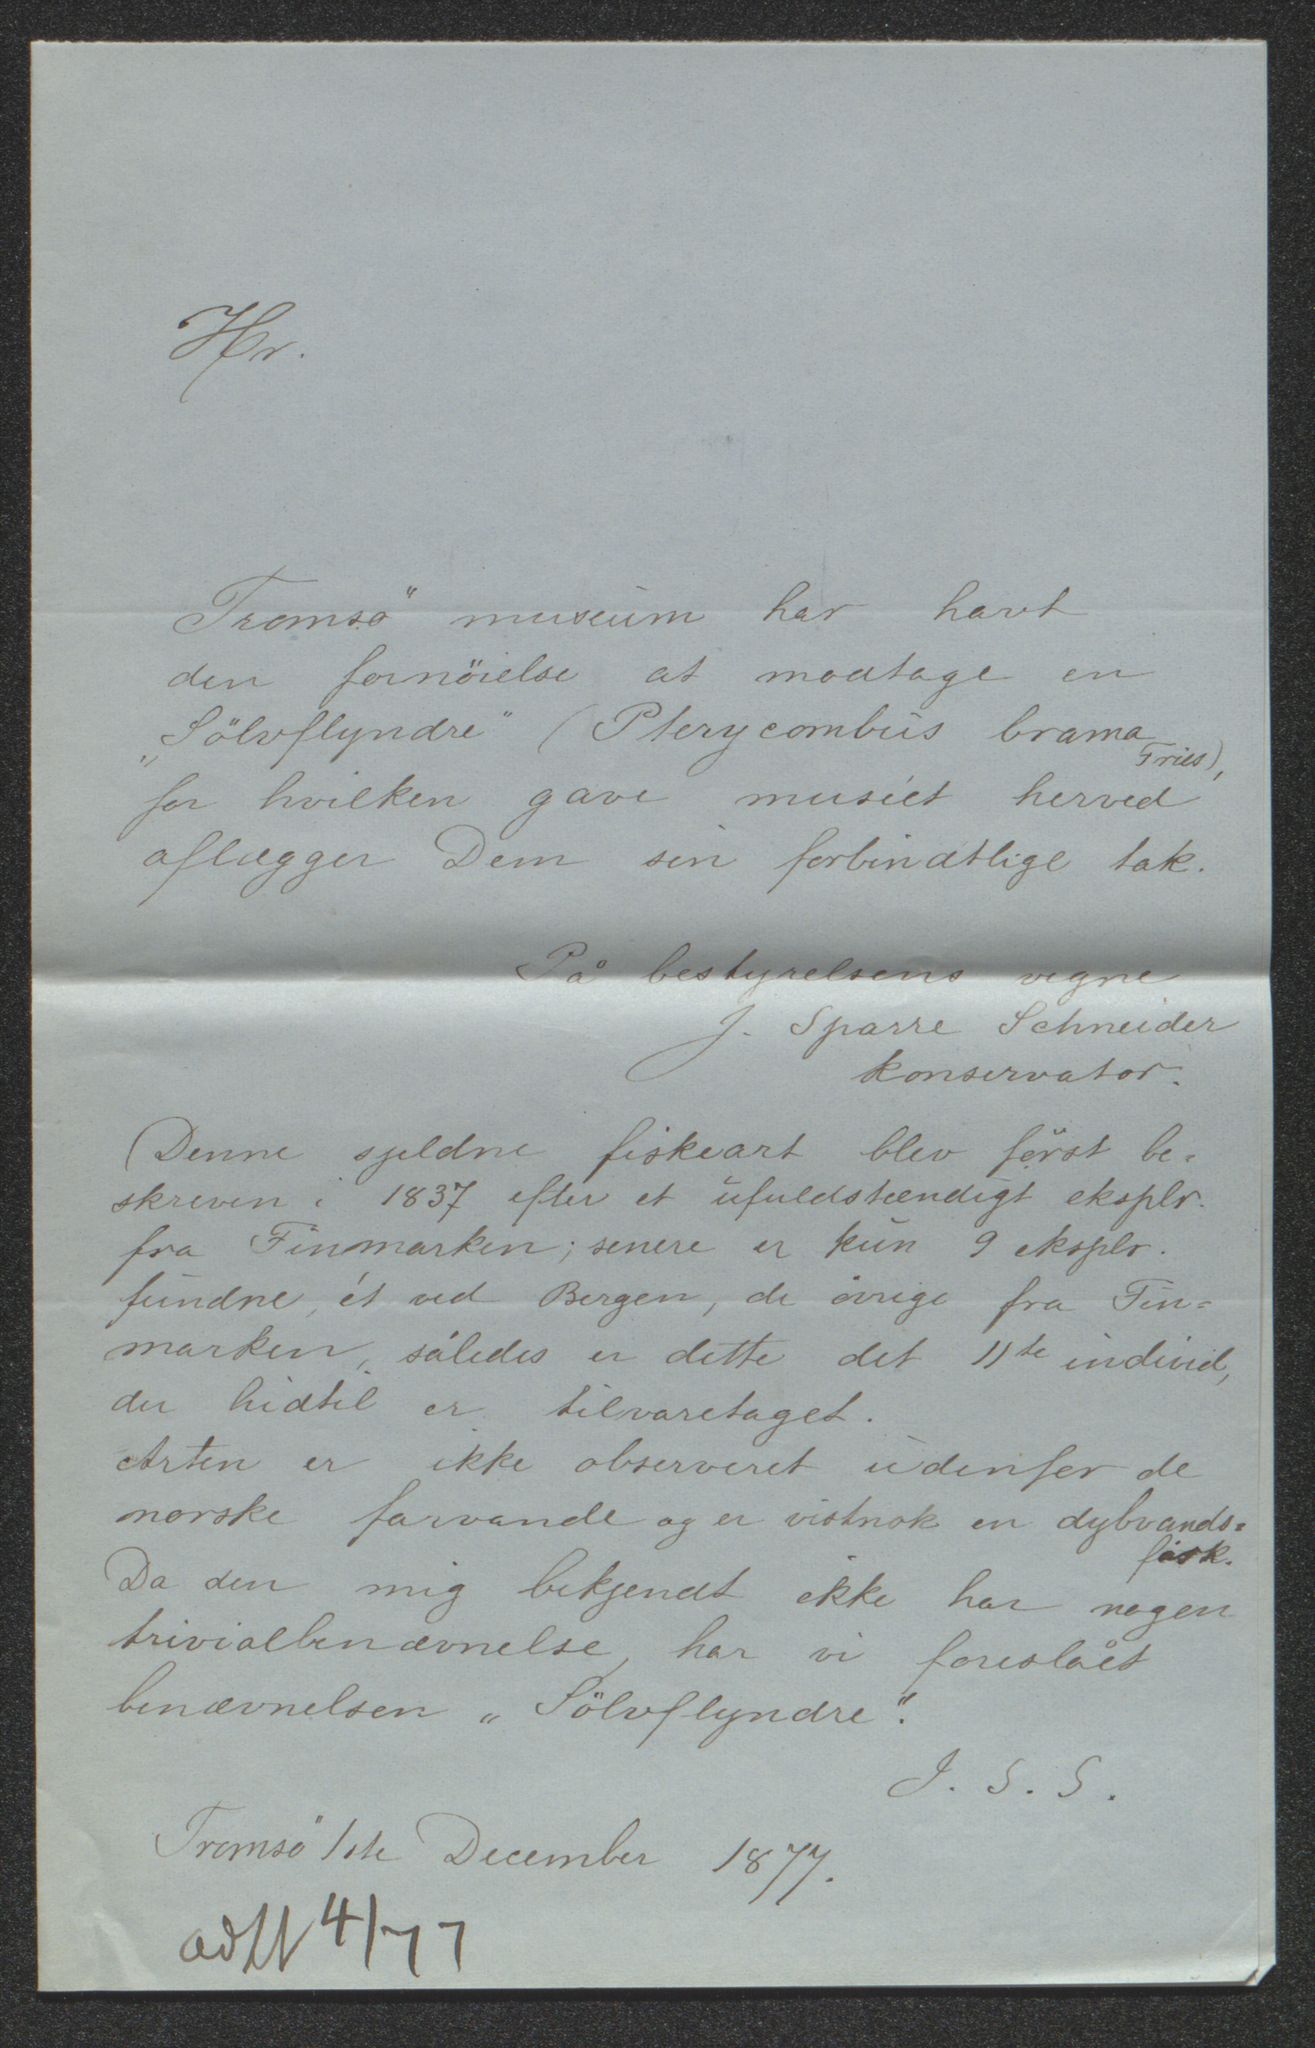 Hr.
Tromsö museum har havt
den fornöielse at modtage en
„Sölvflyndre" (Pterycombus brama
Fries),
for hvilken gave muséet herved
aflægger Dem sin forbindtlige tak.
På bestyrelsens vegne
J. Sparre Schneider
konservator.
Denne sjeldne fiskeart blev först be=
skreven i 1837 efter et ufuldstændigt eksplr.
fra Finmarken; senere er kun 9 eksplr.
fundne, ét ved Bergen, de övrige fra Fin=
marken, således er dette det 11te individ,
der hidtil er tilvaretaget.
Arten er ikke observeret udenfor de
norske farvande og er vistnok en dybvands=
fisk.
Da den mig bekjendt ikke har nogen
trivialbenævnelse, har vi foreslået
benævnelsen „Sölvflyndre".
J. S. S.
Tromsö 1ste December 1877.
4/77